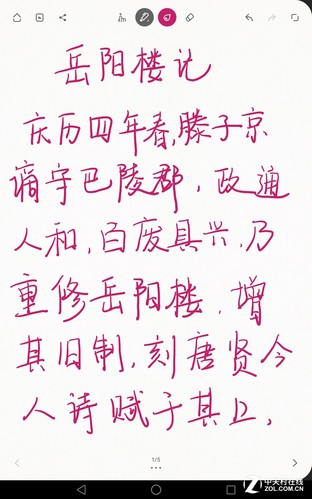 岳阳楼记
庆历四年春,滕子京
谪守巴陵郡，政通
人和,百废具兴,乃
重修岳阳楼，增
其旧制,刻唐贤今
人诗赋于其上,
1/5
中关村在线
ZOL.COM.CN